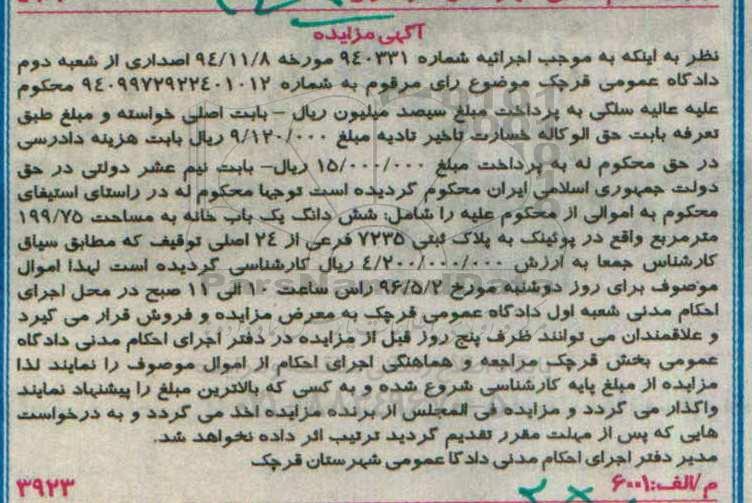 آگهی مزایده
نظر به اینکه به موجب اجرائیه شماره ۹۴۰۳۳۱ مورخه ۹۴/۱۱/۸ اصداری از شعبه دوم
دادگاه عمومی قرچک موضوع رای مرقوم به شماره ۹۴۰۹۹۷۲۹۲۲۴۰۱۰۱۲ محکوم
علیه عالیه سلگی به پرداخت مبلغ سیصد میلیون ریال – بابت اصلی خواسته و مبلغ طبق
تعرفه بابت حق الوکاله خسارت تاخیر تادیه مبلغ ۹/۱۲۰/۰۰۰ ریال بابت هزینه دادرسی
در حق محکوم له به پرداخت مبلغ ۱۵/۰۰۰/۰۰۰ ریال– بابت نیم عشر دولتی در حق
دولت جمهوری اسلامی ایران محکوم گردیده است توجها محکوم له در راستای استیفای
محکوم به اموالی از محکوم علیه را شامل: شش دانگ یک باب خانه به مساحت ۱۹۹/۷۵
مترمربع واقع در پوئینک به پلاک ثبتی ۷۲۳۵ فرعی از ۲۴ اصلی توقیف که مطابق سیاق
کارشناس جمعا به ارزش ۴/۲۰۰/۰۰۰/۰۰۰ ریال کارشناسی گردیده است لهذا اموال
موصوف برای روز دوشنبه مورخ ۹۶/۵/۲ راس ساعت ۱۰ الی ۱۱ صبح در محل اجرای
احکام مدنی شعبه اول دادگاه عمومی قرچک به معرض مزایده و فروش قرار می گیرد
و علاقمندان می توانند ظرف پنج روز قبل از مزایده در دفتر اجرای احکام مدنی دادگاه
عمومی بخش قرچک مراجعه و هماهنگی اجرای احکام از اموال موصوف را نمایند لذا
مزایده از مبلغ پایه کارشناسی شروع شده و به کسی که بالاترین مبلغ را پیشنهاد نمایند
واگذار می گردد و مزایده فی المجلس از برنده مزایده اخذ می گردد و به درخواست
هایی که پس از مهلت مقرر تقدیم گردید ترتیب اثر داده نخواهد شد.
مدیر دفتر اجرای احکام مدنی دادگا عمومی شهرستان قرچک
م/الف:۶۰۰۱
۳۹۲۳